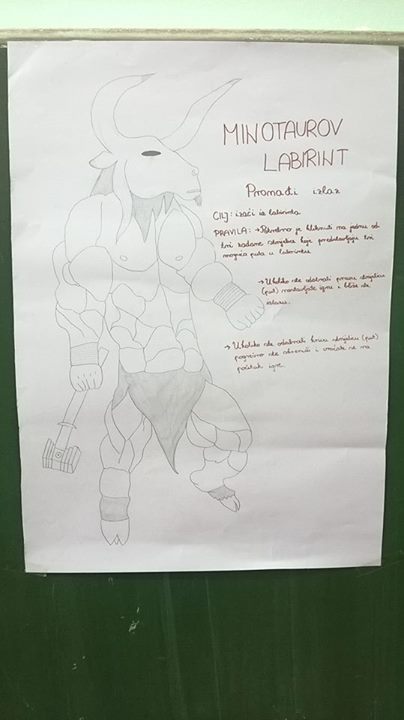 MINOTAUROV
LABIRINT
Pronađi izlaz
CILJ: izaći iz labirinta
PRAVILA: → Potrebno je kliknuti na jednu od
tri zadane sličice koje predstavljaju tri
moguća puta u labirintu
→ Ukoliko ste odabrali pravu sličicu
(put) nastavljate igru i bliže ste
izlazu.
→ Ukoliko ste odabrali krivu sličicu (put)
pogrešno ste skrenuli i vraćate se na
početak igre